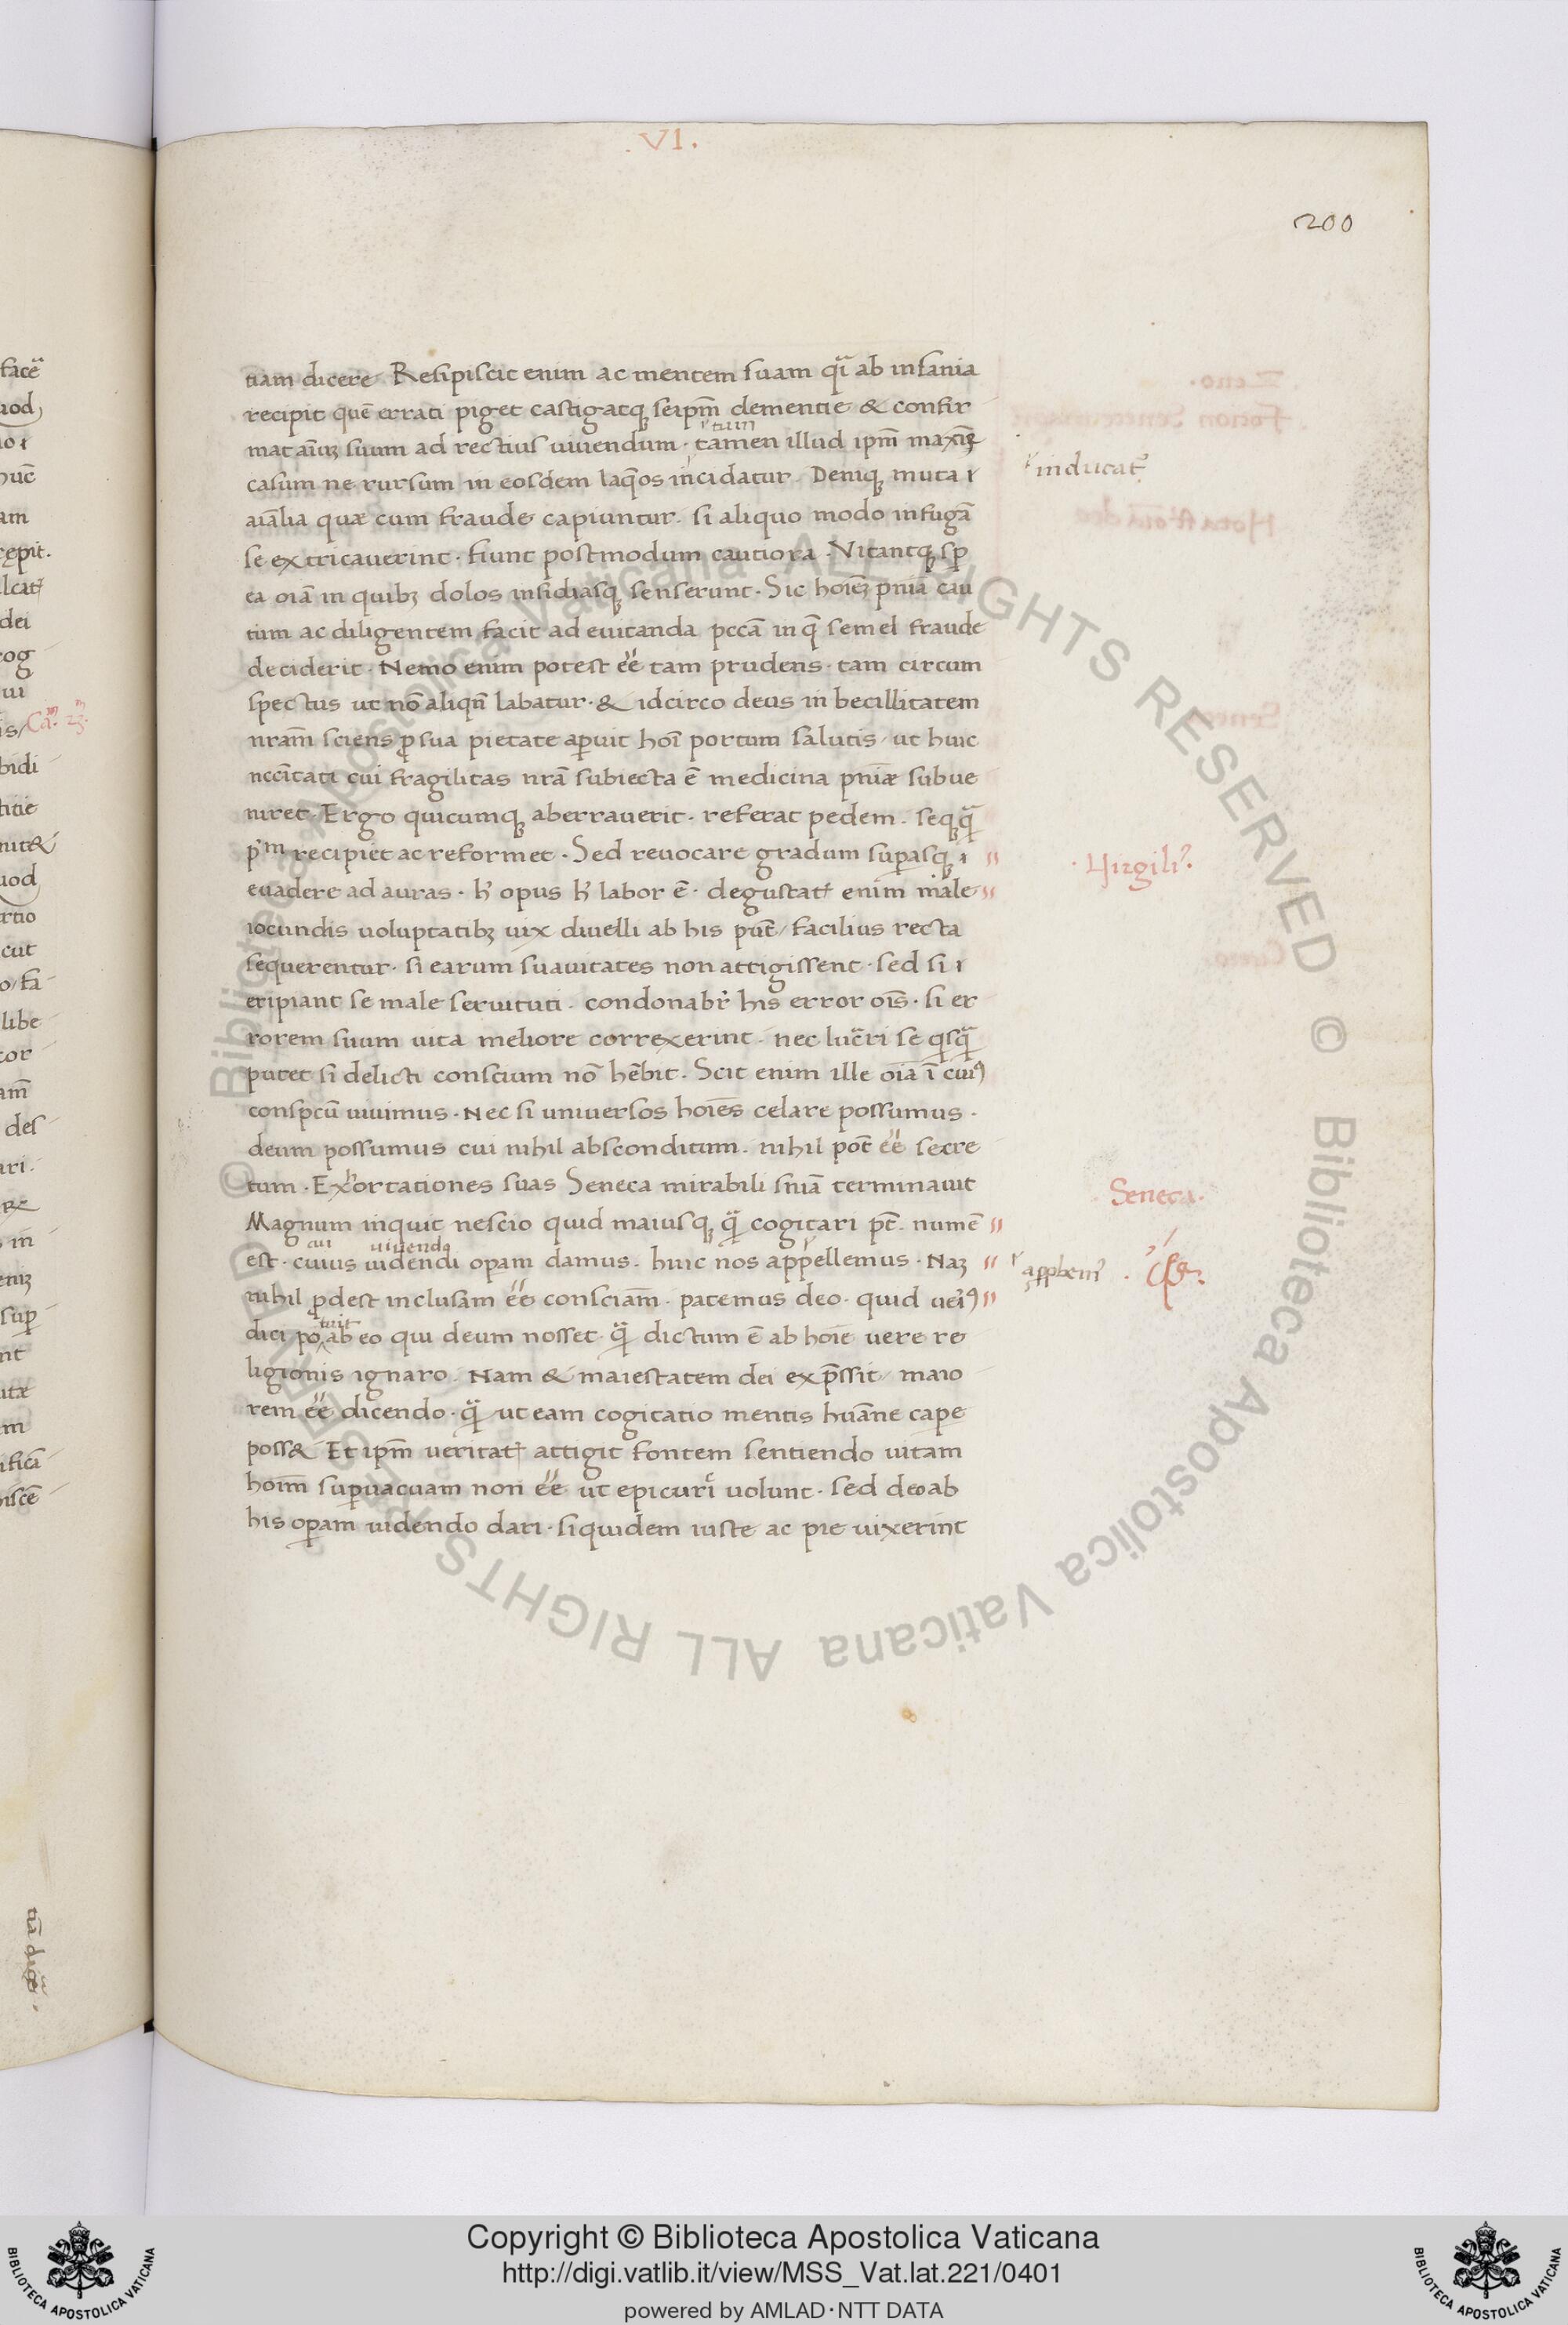 .VI.
200
tiam dicere. Resipiscit enim ac mentem suam q̃i ab insania
recipit quē errati piget castigatq; seip̄m dementie & confir
mat aīuȝ suum ad rectius uiuendum. tamen illud ip̄m maxīe
tum
casum ne rursum in eosdem laq̄os incidatur. Deniq; muta
inducat᷑
aīalia quæ cum fraude capiuntur. si aliquo modo in fugā
se extricauerint. fiunt postmodum cautiora. Vitantq; sp̄
ea oīa in quibȝ dolos insidiasq; senserunt. Sic hoīeȝ pn̄ia cau
tum ac diligentem facit ad euitanda pccā in q̄ semel fraude
deciderit. Nemo enim potest ēē tam prudens. tam circum
spectus ut nō aliqn̄ labatur. & idcirco deus in becillitatem
nr̄am sciens p sua pietate apuit hoī portum salutis. ut huic
nccītati cui fragilitas nr̄a subiecta ē medicina pn̄iæ subue
niret. Ergo quicumq; aberrauerit. referat pedem. seq; q̃
pᵐ recipiet ac reformet. Sed reuocare gradum supasq;
Virgili᾽.
euadere ad auras. h᾽ opus h᾽ labor ē. degustat᷑ enim male
iocundis uoluptatibȝ uix diuelli ab his pn̄t / facilius recta
sequerentur. si earum suauitates non attigissent. sed si
eripiant se male seruituti. condonabr᾽ his error oīs. si er
rorem suum uita meliore correxerint. nec luc̄ri se qsq̃
putet si delicti conscium nō hēbit. Scit enim ille oīa ī cuiꝰ
conspcū uiuimus. Nec si uniuersos hoīes celare possumus.
deum possumus cui nihil absconditum. nihil pōt ēē secre
tum. Exortationes suas Seneca mirabili sn̄ia terminauit
Seneca.
Magnum inquit nescio quid maiusq; q̃ cogitari pt̄. numē
cui uiuendo
est. cuius uidendi opam damus. huic nos appellemus. Naȝ
appbem᾽
nihil pdest inclusam ēē consciam. patemus deo. quid ueriꝰ
tuit
dici po ab eo qui deum nosset. q̃ dictum ē ab hoīe uere re
ligionis ignaro. Nam & maiestatem dei exp̄ssit / maio
rem ēē dicendo. q̃ ut eam cogitatio mentis hūane cape
poss& Et ip̄m ueritat᷑ attigit fontem sentiendo uitam
hoīm supuacuam non ēē. ut epicuri uolunt. sed deo ab
his opam uidendo dari. siquidem iuste ac pie uixerint
© Biblioteca Apostolica Vaticana ALL RIGHTS RESERVED © Biblioteca Apostolica Vaticana ALL RIGHTS RESERVED
Copyright © Biblioteca Apostolica Vaticana
http://digi.vatlib.it/view/MSS_Vat.lat.221/0401
powered by AMLAD·NTT DATA
BIBLIOTECA APOSTOLICA VATICANA
BIBLIOTECA APOSTOLICA VATICANA